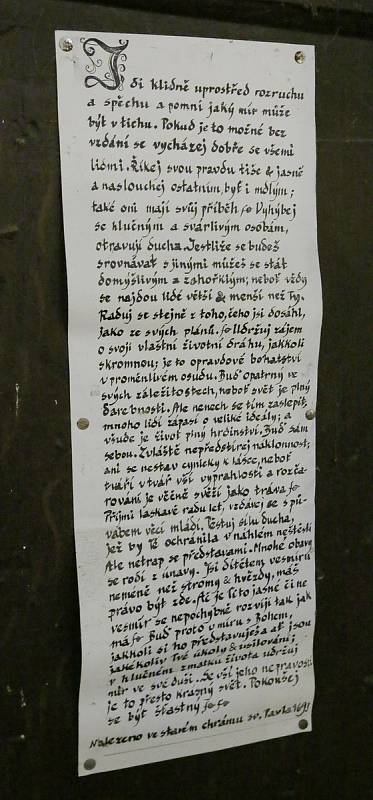 Jdi klidně uprostřed rozruchu
a spěchu a pomni jaký mír může
být v tichu. Pokud je to možné bez
vzdání se vycházej dobře se všemi
lidmi. Říkej svou pravdu tiše & jasně
a naslouchej ostatním, byť i mdlým;
také oni mají svůj příběh Vyhýbej
se hlučným a svárlivým osobám,
otravují ducha. Jestliže se budeš
srovnávat s jinými můžeš se stát
domýšlivým a zahořklým; neboť vždy
se najdou lidé větší & menší než Ty.
Raduj se stejně z toho, čeho jsi dosáhl,
jako ze svých plánů. Udržuj zájem
o svoji vlastní životní dráhu, jakkoli
skromnou; je to opravdové bohatství
v proměnlivém osudu. Buď opatrný ve
svých záležitostech, neboť svět je plný
Ale nenech se tím zaslepit,
mnoho lidí zápasí o veliké ideály; a
všude je život plný hrdinství. Buď sám
sebou. Zvláště nepředstírej náklonnost;
ani se nestav cynicky k lásce, neboť
tváří v tvář vší vyprahlosti a rozča-
rování je věčně svěží jako tráva
Přijmi laskavě radu let, vzdávej se s pů-
vabem věcí mládí. Pěstuj sílu ducha,
jež by Tě ochránila v náhlém neštěstí
Ale netrap se představami. Mnohé obavy
se rodí z únavy. Jsi dítětem vesmíru
neméně než stromy & hvězdy, máš
právo být zde. Ač je Ti to jasné či ne
vesmír se nepochybně rozvíjí tak jak
má Buď proto v míru s Bohem,
jakkoli si ho představuješ a ať jsou
jakékoliv Tvé úkoly & usilování,
v hlučném zmatku života udržuj
mír ve své duši. Se vší jeho
je to přesto krásný svět. Pokoušej
se být šťastný
Nalezeno ve starém chrámu sv. Pavla